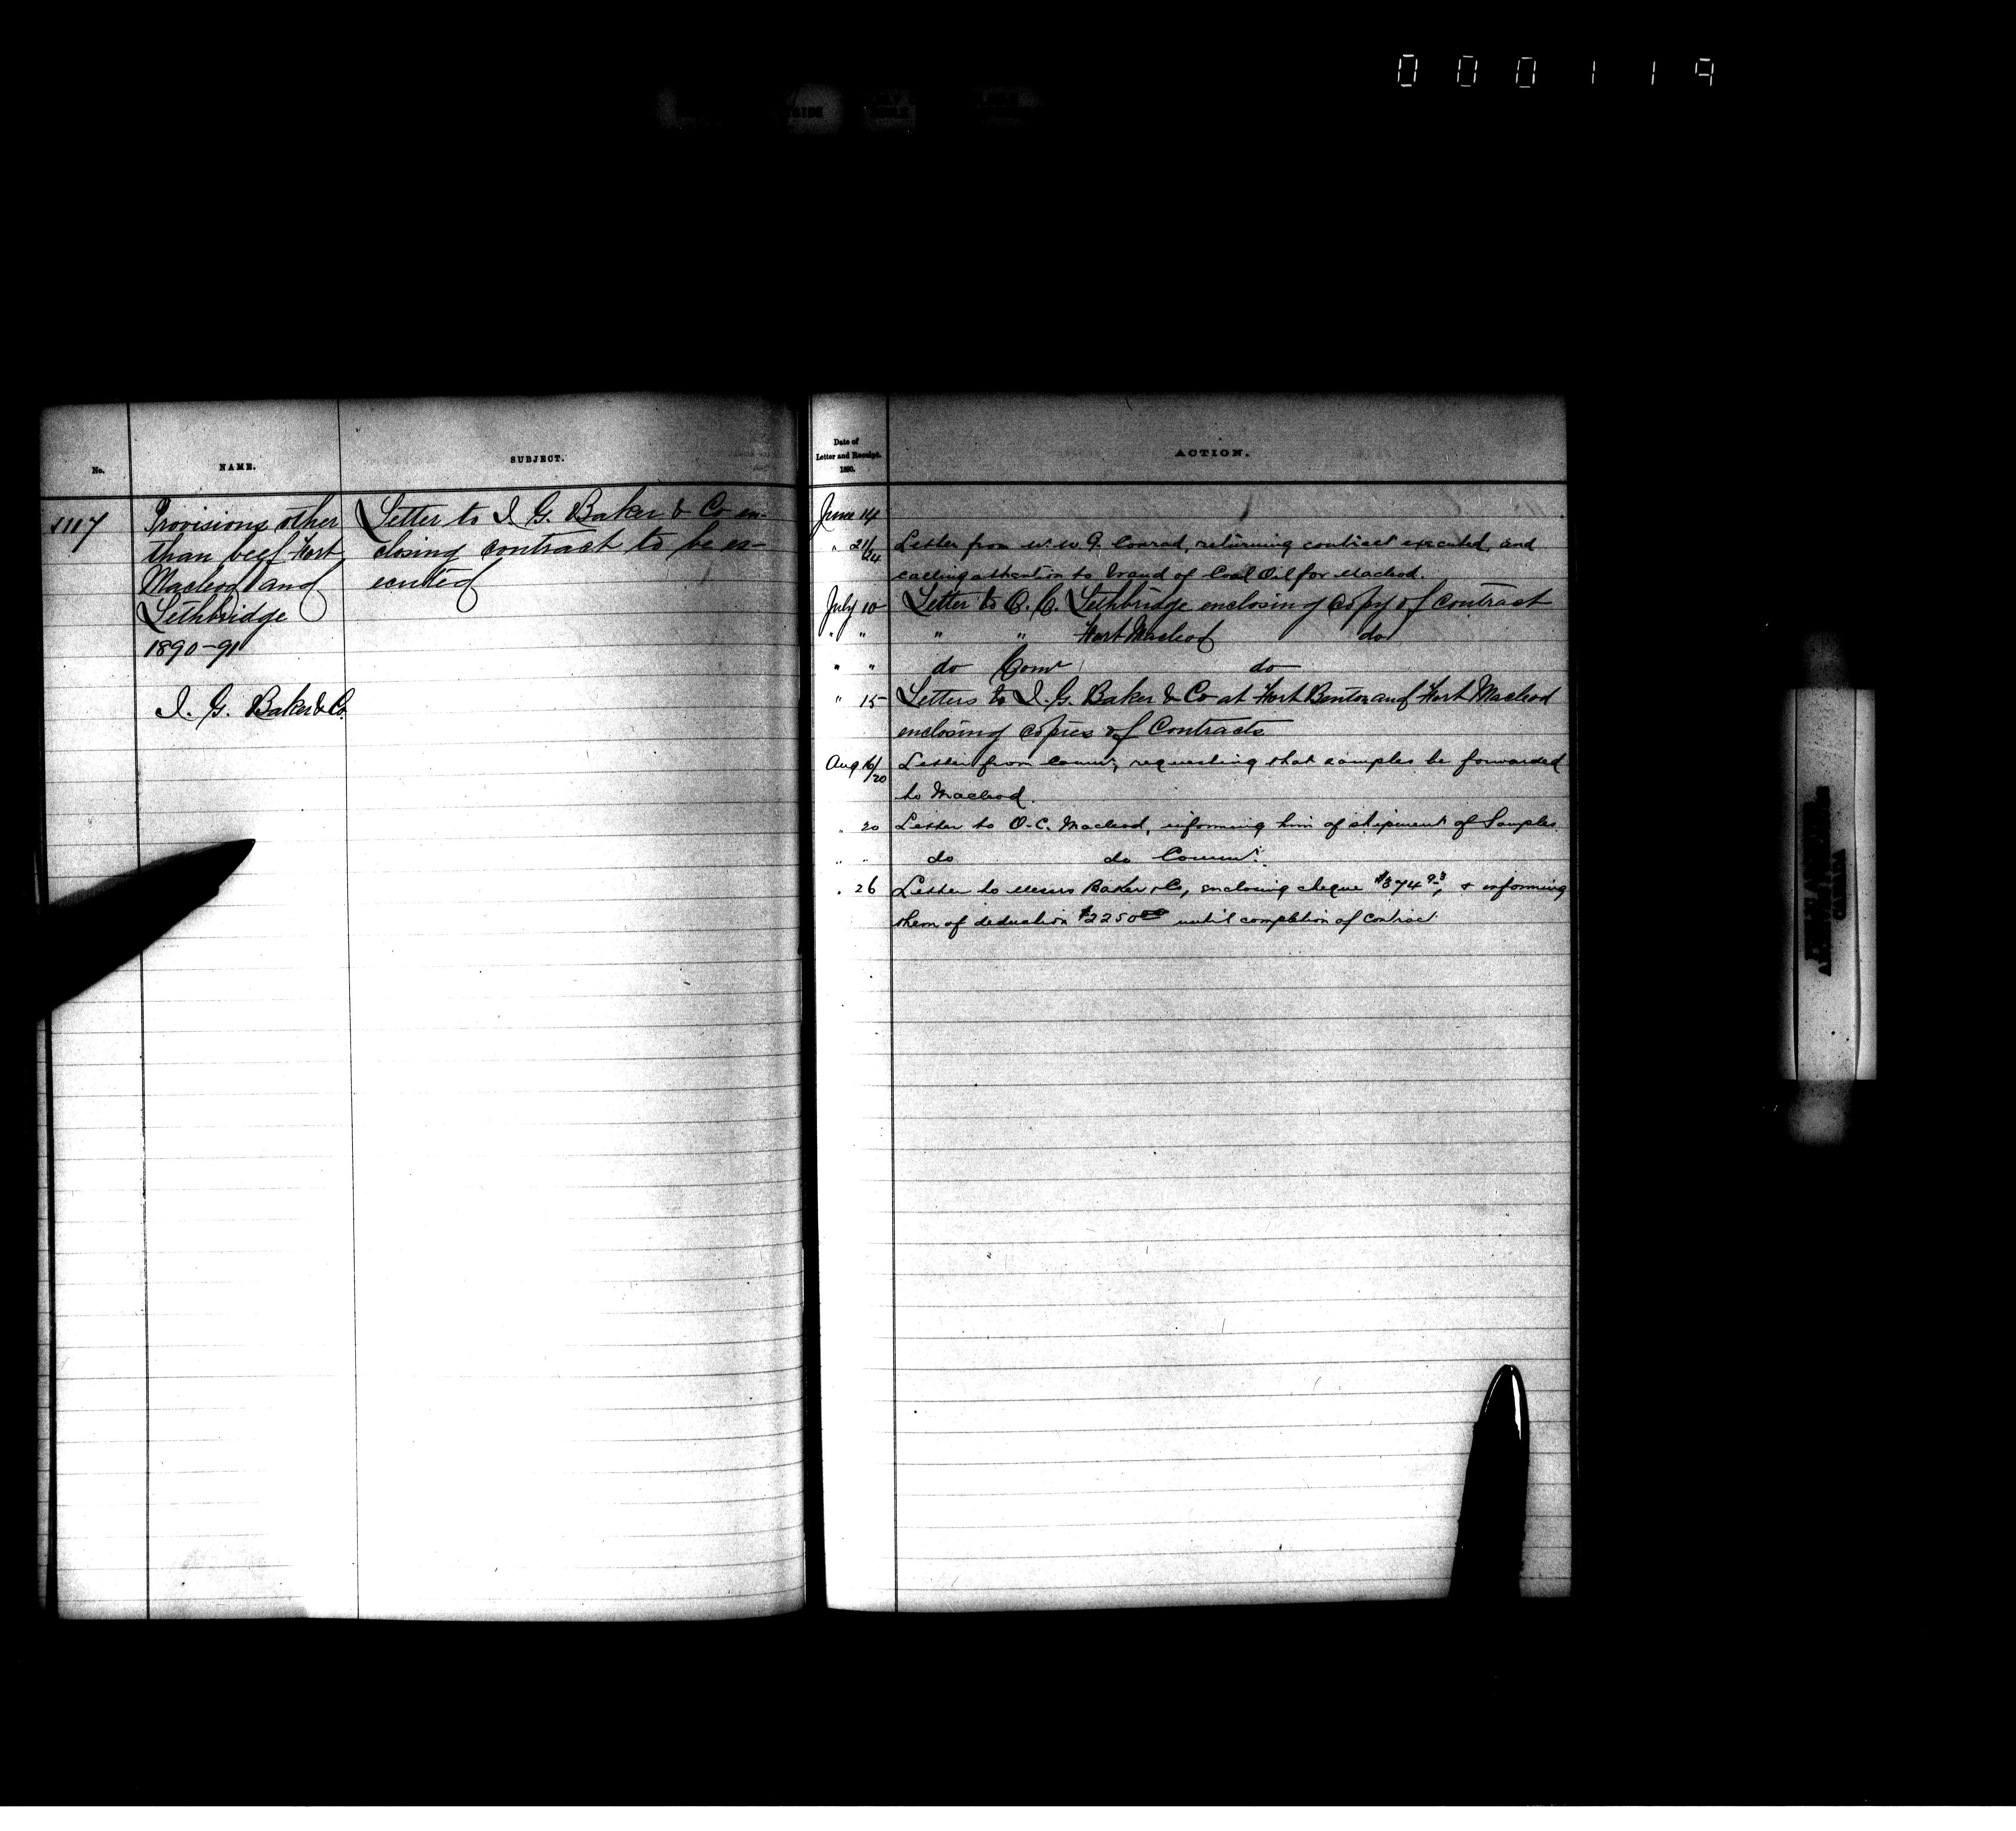 000119
No.
NAME.
SUBJECT.
1117
Provisions other
than beef Fort
Macleod and
Lethbridge
1890-91
I. G. Baker & Co.
Letter to I. G. Baker & Co en-
closing contract to be ex-
ecuted
Date of
Letter and Receipt.
1890.
ACTION.
June 14
" 21/24 Letter from W. G. Conrad, returning contract executed, and
calling attention to brand of Coal Oil for Macleod.
July 10 Letter to O. C. Lethbridge enclosing copy of contract
" " " " Fort Macleod do
" " do Comr do
" 15 Letters to I. G. Baker & Co at Fort Benton and Fort Macleod
enclosing copies of Contracts
Aug 16/20 Letter from Commr, requesting that samples be forwarded
to Macleod.
" 20 Letter to O.C. Macleod, informing him of shipment of Samples.
" " do do Commr.
" 26 Letter to Messrs Baker & Co, enclosing cheque $374 93, & informing
them of deduction $2250 00 until completion of contract